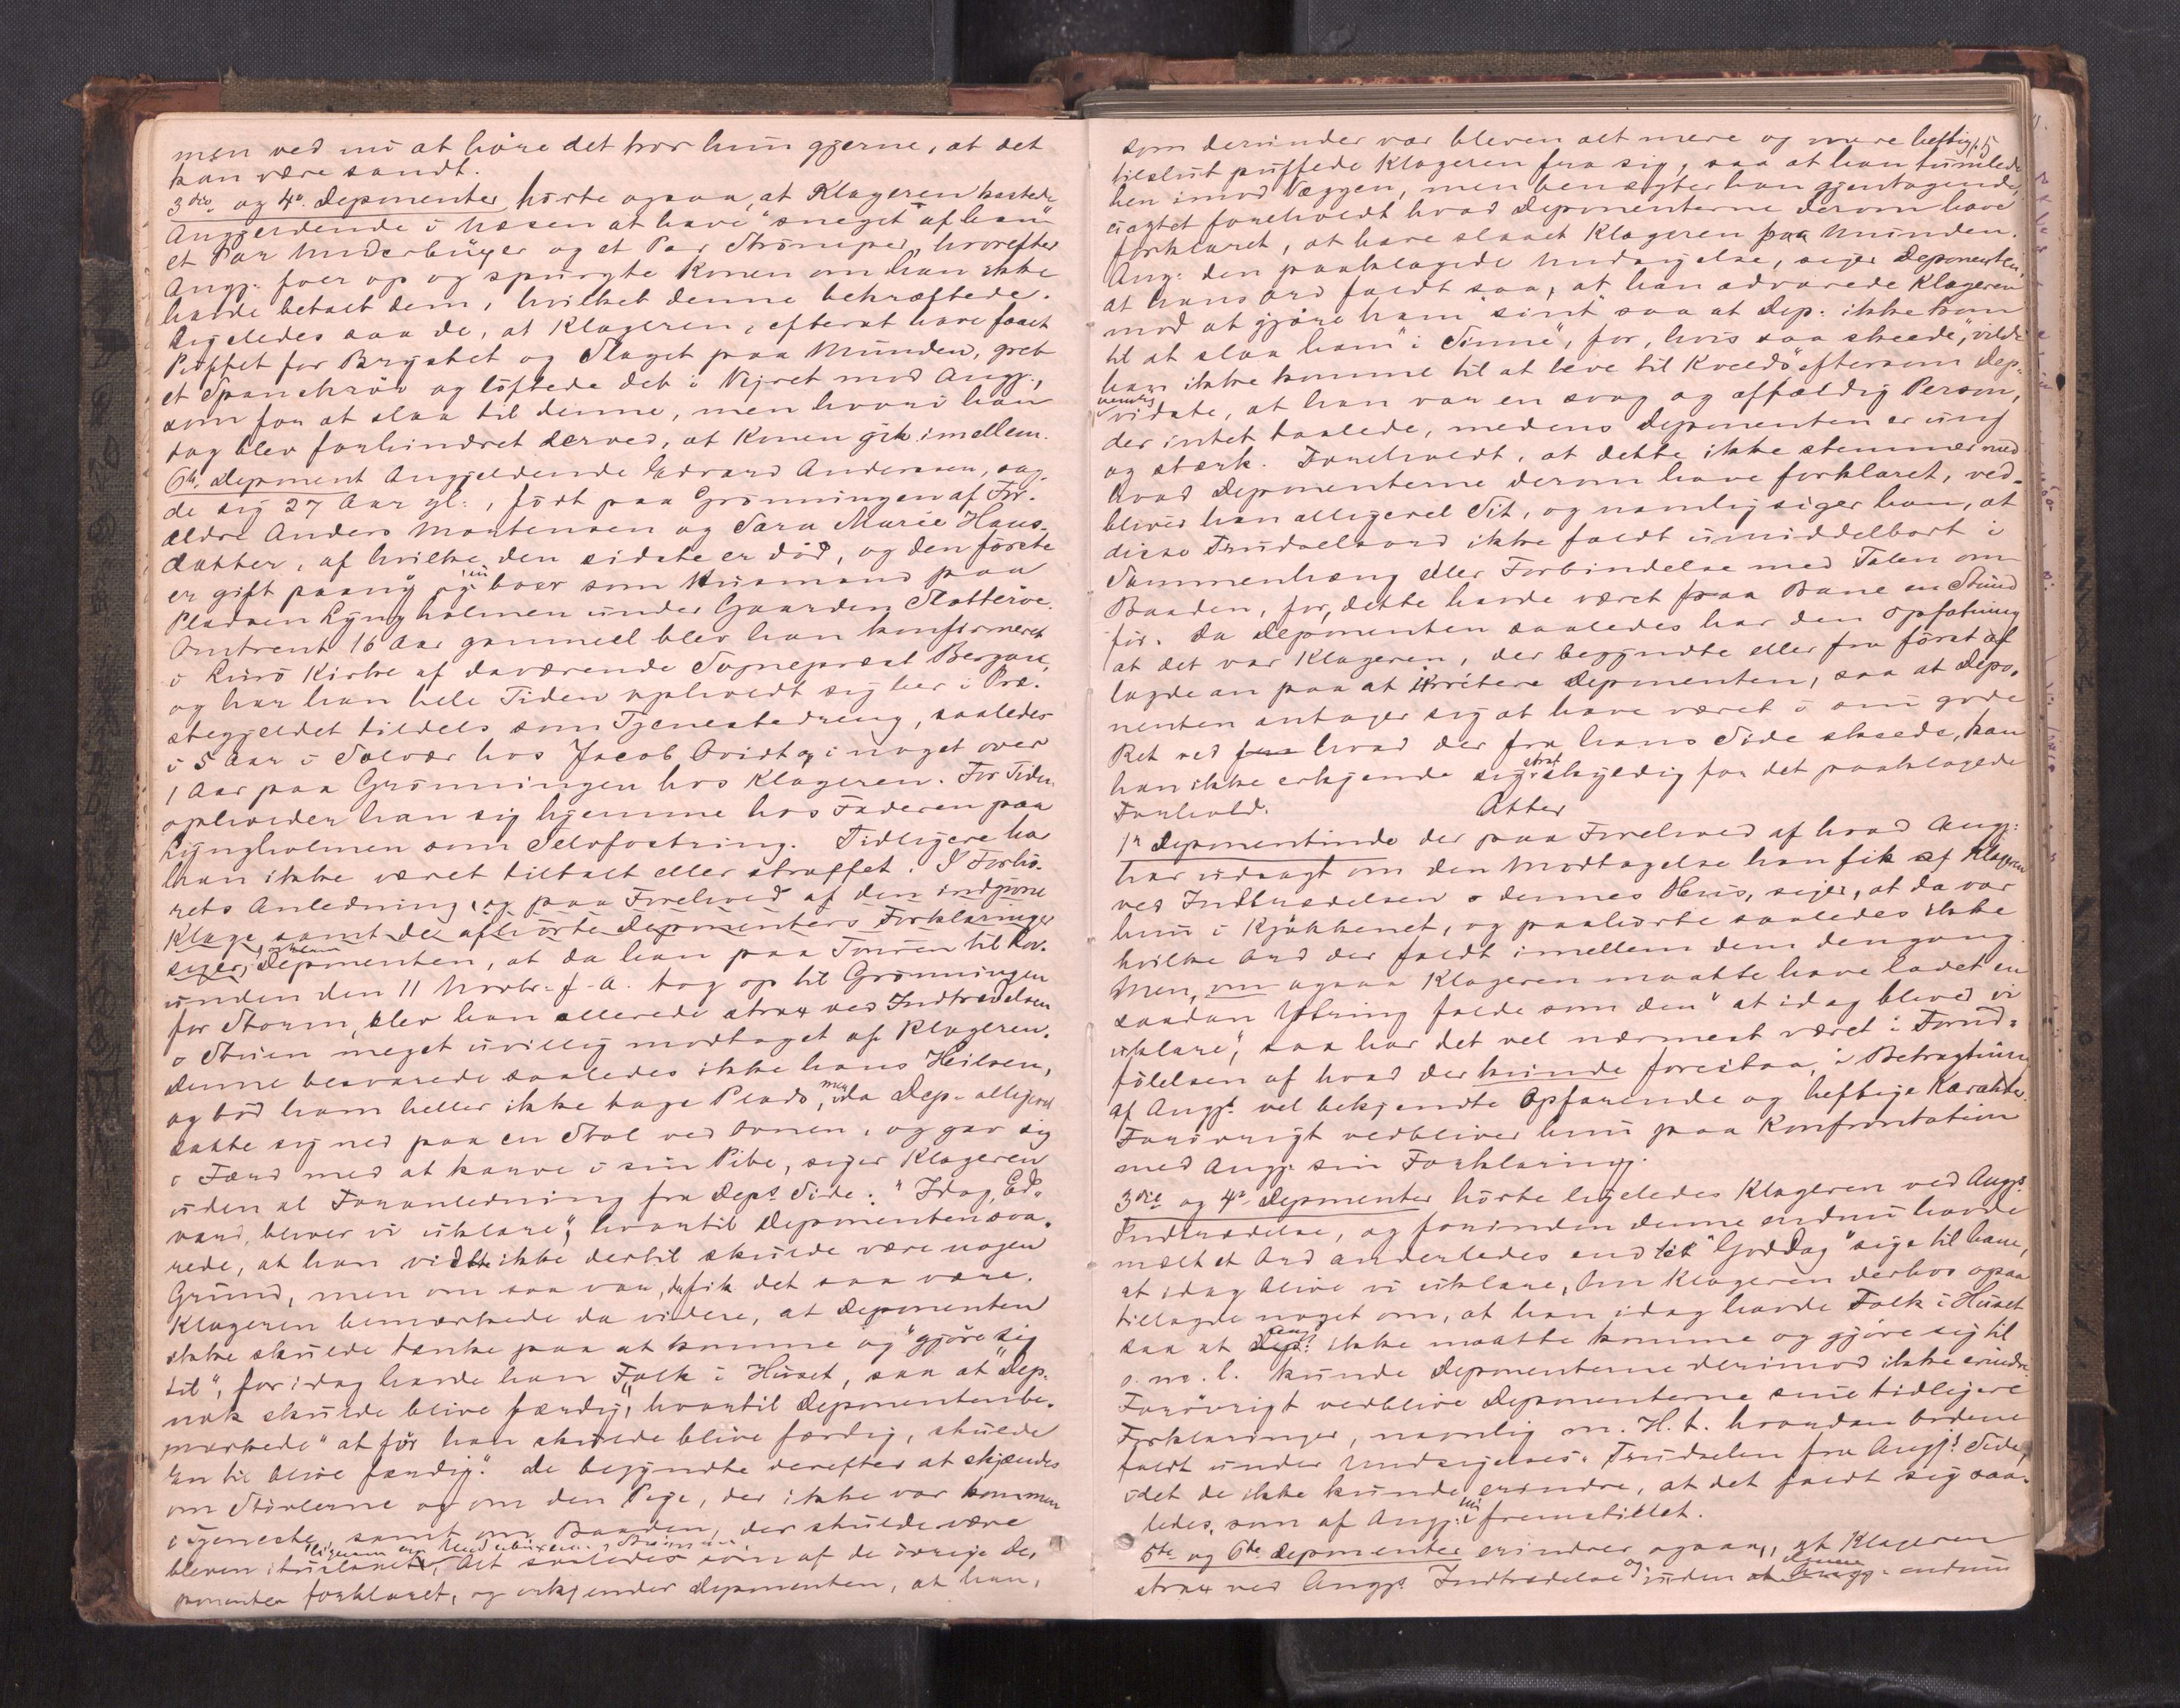 men ved nu at høre det tror hun gjerne, at det
kan være sandt.
3die og 4de Deponenter hørte ogsaa, at Klageren kastede
Angjeldende i Næsen at have "sneget" af ham
et Par Underbuxer og et Par Strømper, hvorefter
Angj. foer op og spurgte Konen om han ikke
havde betalt dem, hvilket denne bekræftede.
Ligeledes saa de, at Klageren, efterat have faaet
Puffet for Brystet og Slaget paa Munden, greb
et Spanskrør og løftede det i Vejret mod Angj.,
som for at slaa til denne, men hvori han
dog blev forhindret derved, at Konen gik imellem.
6te Deponent Angjeldende Edvard Andersen, sag-
de sig 27 Aar gl:, født paa Grønningen af For-
ældre Anders Mortensen og Sara Marie Hans-
datter, af hvilke den sidste er død, og den første
er gift paany og nu boer som Husmand paa
Pladsen Lyngholmen under Gaarden Slotterøe.
Omtrent 16 Aar gammel blev han konfirmeret
i Lurø Kirke af daværende Sognepræst Bergan,
og har han hele Tiden opholdt sig her i Præ-
stegjeldet tildels som Tjenestedreng, saaledes
i 5 Aar i Solvær hos Jacob Qvidt og i noget over
1 Aar paa Grønningen hos Klageren. For Tiden
opholder han sig hjemme hos Faderen paa
Lyngholmen som Selvfostring. Tidligere har
han ikke været tiltalt eller straffet. I Forhø-
rets Anledning, og paa Forehold af den indgivne
Klage samt de afhørte Deponenters Forklaringer
siger Deponenten, at da han paa Touren til Lov-
unden den 11 Novbr. f. A. tog op til Grønningen
for Storm, blev han allerede strax ved Indtrædelsen
i Stuen meget uvillig modtaget af Klageren.
Denne besvarede saaledes ikke hans Hilsen,
og bød ham heller ikke tage Plads, men da Dep. alligevel
satte sig ned paa en Stol ved Ovnen, og gav sig
i Færd med at karve i sin Pibe, siger Klageren
uden al Foranledning fra Deps Side: "Idag, Ed-
vard, bliver vi uklare", hvortil Deponenten sva-
rede, at han vidste ikke dertil skulde være nogen
Grund, men om saa var, da fik det saa være.
Klageren bemærkede da videre, at Deponenten
ikke skulde tænke paa at komme og "gjøre sig
til", for idag havde han Folk i Huset, saa at "Dep.
nok skulde blive færdig", hvortil Deponenten be-
mærkede "at før han skulde blive færdig, skulde
En til blive færdig". De begyndte derefter at skjændes
om Støvlerne og om den Pige, der ikke var kommen
i Tjeneste, samt om Baaden, der skulde være
ligesom om Underbuxerne, Strømper
bleven ituslaaet, Alt saaledes som af de øvrige De-
ponenter forklaret, og erkjender Deponenten, at han,
som derunder var bleven alt mere og mere heftig,
tilslut puffede Klageren fra sig, saa at han tumlede
hen imod Væggen, men benægter han gjentagende,
uagtet foreholdt hvad Deponenterne derom have
forklaret, at have slaaet Klageren paa Munden.
Ang: den paaklagede Undsigelse, siger Deponenten,
at hans Ord faldt saa, at han advarede Klageren
mod at gjøre ham "sint" saa at Dep. ikke kom
til at slaa ham "i Sinne", for, hvis saa skeede, "vilde
han ikke komme til at leve til Kvelds" eftersom Dep.
vidste, at han var en svag og affældig Person,
der intet taalede, medens Deponenten er ung
og stærk. Foreholdt, at dette ikke stemmer med
hvad Deponenterne derom have forklaret, ved-
bliver han alligevel Sit, og navnlig siger han, at
disse Trudselsord ikke faldt umiddelbart i
Sammenhæng eller Forbindelse med Talen om
Baaden, for dette havde været paa Bane en Stund
før. Da Deponenten saaledes har den Opfatning
at det var Klageren, der begyndte eller fra først af
lagde an paa at irritere Deponenten, saa at Depo-
nenten antager sig at have været i sin gode
Ret ved hvad der fra hans Side skeede, kan
han ikke erkjende sig strafskyldig for det paaklagede
Forhold. Atter
1ste Deponentinde der paa Forehold af hvad Angj:
har udsagt om den Modtagelse han fik af Klageren
ved Indtrædelsen i dennes Hus, siger, at da var
hun i Kjøkkenet, og paahørte saaledes ikke
hvilke Ord der faldt imellem dem dengang.
Men, om ogsaa Klageren maatte have ladet en
saadan Ytring falde som den "at idag blived vi
uklare", saa har det vel nærmest været i Forud-
følelsen af hvad der kunde forestaa, i Betragtning
af Angjs vel bekjendte Opfarende og heftige Karakter.
Forøvrigt vedbliver hun paa Konfrontation
med Angj. sin Forklaring.
3die og 4de Deponenter hørte ligeledes Klageren ved Angjs
Indtrædelse, og forinden denne endnu havde
mælt et Ord anderledes end et "God Dag" sige til ham,
at idag blive vi uklare. Om Klageren derhos ogsaa
tillagde noget om, at han idag havde Folk i Huset
saa at Angj. ikke maatte komme og gjøre sig til
o. m. l. kunde Deponenterne derimod ikke erindre.
Forøvrigt vedblive Deponenterne sine tidligere
Forklaringer, navnlig m. H. t. hvordan Ordene
faldt under Undsigelses-Trudselen fra Angjs Side,
idet de ikke kunde erindre, at det faldt sig saa-
ledes, som af Angj. nu fremstillet.
5te og 6te Deponenter erindrer ogsaa, at Klageren
strax ved Angjs Indtrædelse og uden at denne endnu